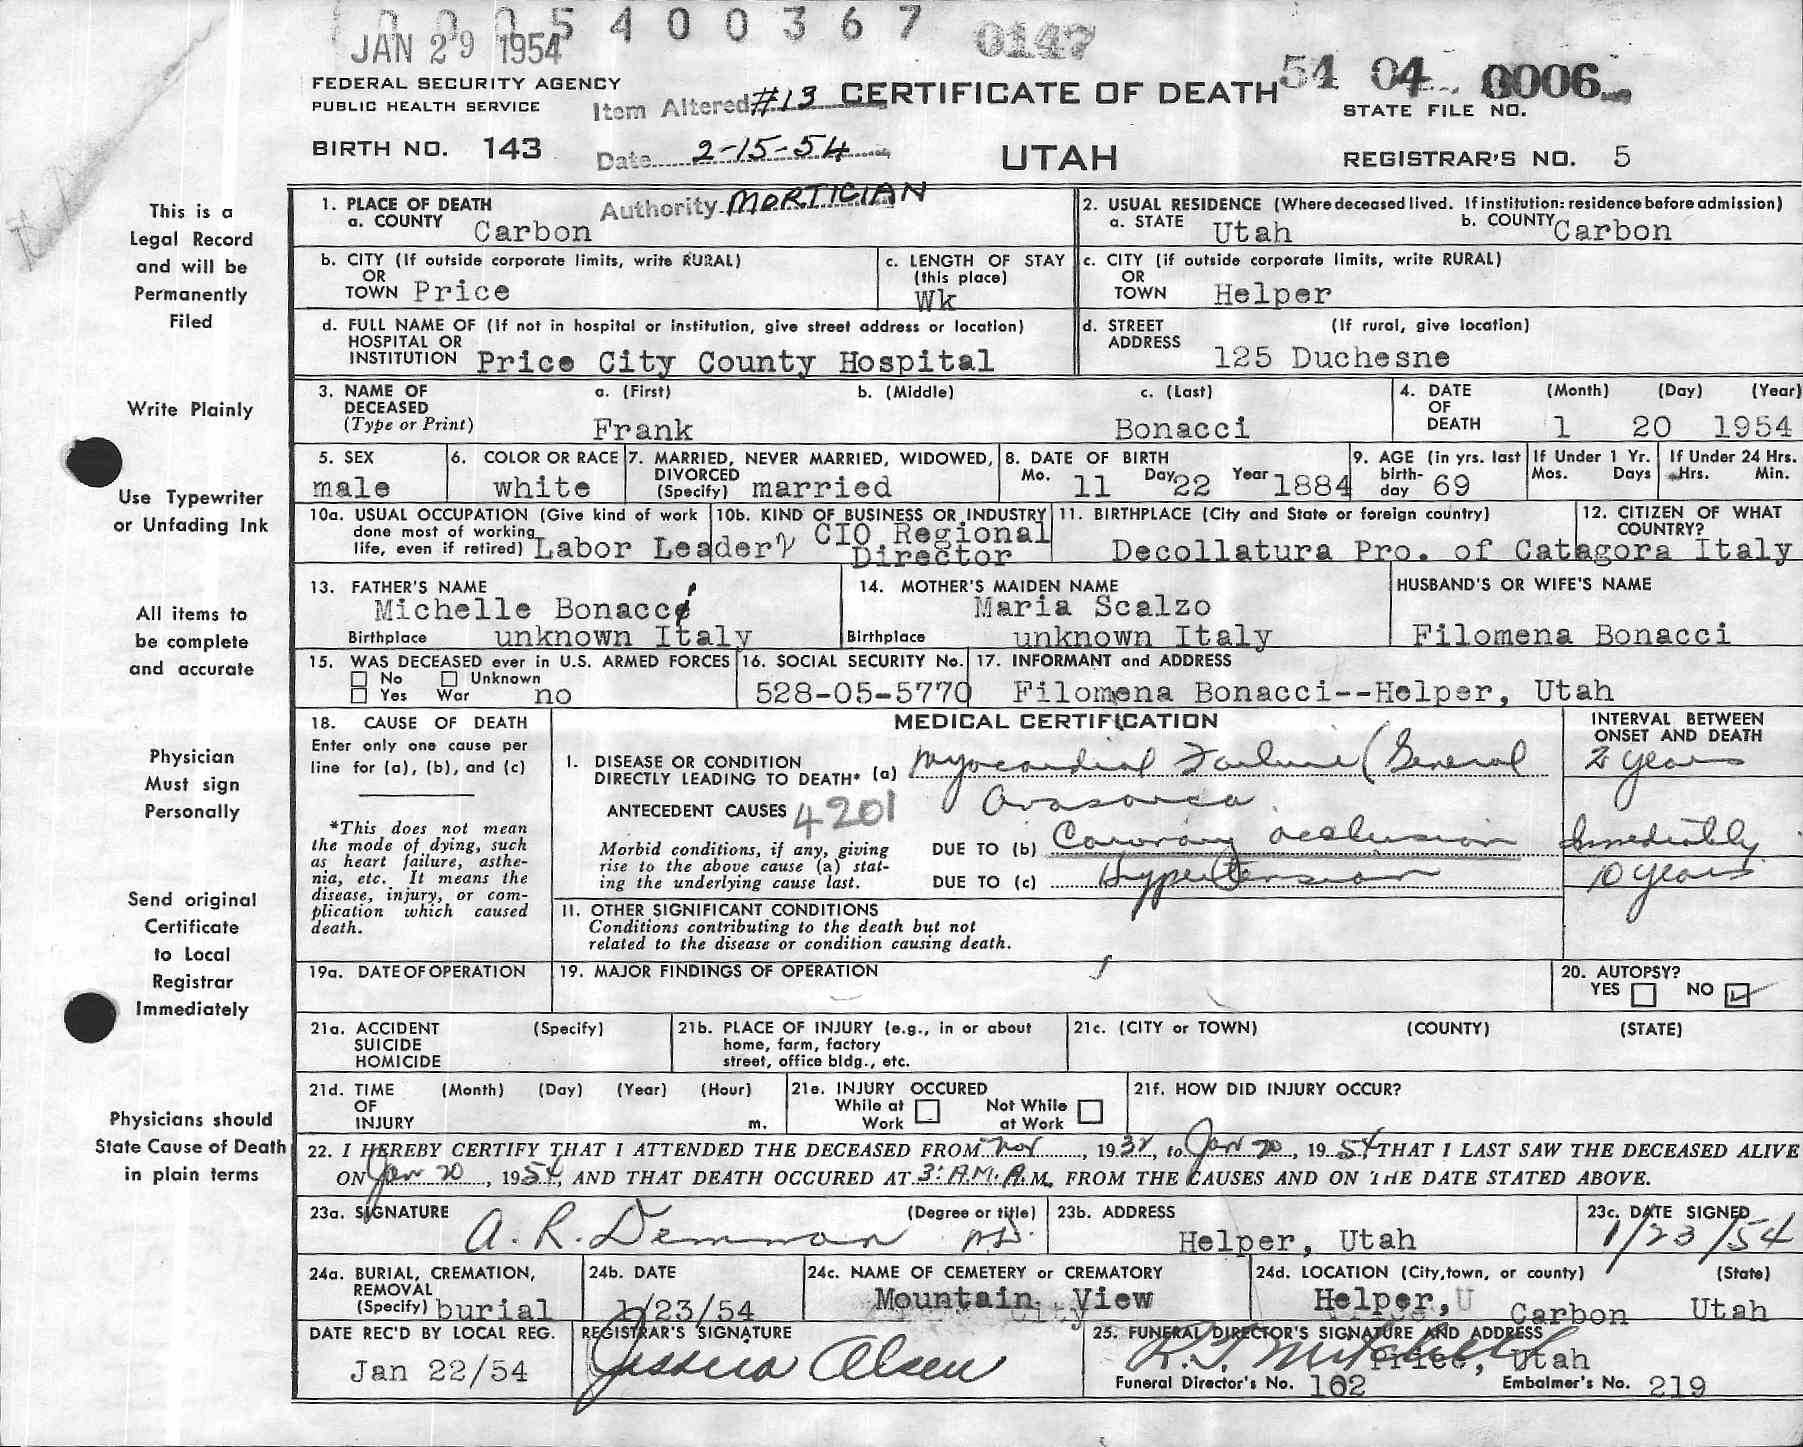 0005400367
JAN 29 1954
0147
FEDERAL SECURITY AGENCY
PUBLIC HEALTH SERVICE
Item Altered #13
CERTIFICATE OF DEATH
54 04 0006
STATE FILE NO.
BIRTH NO. 143
Date 2-15-54
UTAH
REGISTRAR'S NO. 5
Authority MORTICIAN
This is a
Legal Record
and will be
Permanently
Filed
1. PLACE OF DEATH
a. COUNTY Carbon
2. USUAL RESIDENCE (Where deceased lived. If institution: residence before admission)
a. STATE Utah b. COUNTY Carbon
b. CITY (If outside corporate limits, write RURAL)
OR
TOWN Price
c. LENGTH OF STAY
(this place)
Wk
c. CITY (if outside corporate limits, write RURAL)
OR
TOWN Helper
d. FULL NAME OF (If not in hospital or institution, give street address or location)
HOSPITAL OR
INSTITUTION Price City County Hospital
d. STREET (If rural, give location)
ADDRESS
125 Duchesne
Write Plainly
3. NAME OF a. (First) b. (Middle) c. (Last)
DECEASED
(Type or Print) Frank Bonacci
4. DATE (Month) (Day) (Year)
OF
DEATH 1 20 1954
Use Typewriter
or Unfading Ink
5. SEX
male
6. COLOR OR RACE
white
7. MARRIED, NEVER MARRIED, WIDOWED,
DIVORCED
(Specify) married
8. DATE OF BIRTH
Mo. 11 Day 22 Year 1884
9. AGE (in yrs. last
birth-
day 69
If Under 1 Yr.
Mos. Days
If Under 24 Hrs.
Hrs. Min.
10a. USUAL OCCUPATION (Give kind of work
done most of working
life, even if retired) Labor Leader
10b. KIND OF BUSINESS OR INDUSTRY
CIO Regional
Director
11. BIRTHPLACE (City and State or foreign country)
Decollatura Pro. of Catagora Italy
12. CITIZEN OF WHAT
COUNTRY?
All items to
be complete
and accurate
13. FATHER'S NAME
Michelle Bonacci
Birthplace unknown Italy
14. MOTHER'S MAIDEN NAME
Maria Scalzo
Birthplace unknown Italy
HUSBAND'S OR WIFE'S NAME
Filomena Bonacci
15. WAS DECEASED ever in U.S. ARMED FORCES
No Unknown
Yes War no
16. SOCIAL SECURITY No.
528-05-5770
17. INFORMANT and ADDRESS
Filomena Bonacci--Helper, Utah
Physician
Must sign
Personally
18. CAUSE OF DEATH
Enter only one cause per
line for (a), (b), and (c)
*This does not mean
the mode of dying, such
as heart failure, asthe-
nia, etc. It means the
disease, injury, or com-
plication which caused
death.
MEDICAL CERTIFICATION
INTERVAL BETWEEN
ONSET AND DEATH
I. DISEASE OR CONDITION
DIRECTLY LEADING TO DEATH* (a) Myocardial Failure (General
2 years
ANTECEDENT CAUSES 4201 Anasarca
Morbid conditions, if any, giving
rise to the above cause (a) stat-
ing the underlying cause last.
DUE TO (b) Coronary occlusion Immediately
DUE TO (c) Hypertension 10 years
II. OTHER SIGNIFICANT CONDITIONS
Conditions contributing to the death but not
related to the disease or condition causing death.
Send original
Certificate
to Local
Registrar
Immediately
19a. DATE OF OPERATION
19. MAJOR FINDINGS OF OPERATION
20. AUTOPSY?
YES NO
21a. ACCIDENT (Specify)
SUICIDE
HOMICIDE
21b. PLACE OF INJURY (e.g., in or about
home, farm, factory
street, office bldg., etc.
21c. (CITY or TOWN) (COUNTY) (STATE)
21d. TIME (Month) (Day) (Year) (Hour)
OF
INJURY m.
21e. INJURY OCCURED
While at Not While
Work at Work
21f. HOW DID INJURY OCCUR?
Physicians should
State Cause of Death
in plain terms
22. I HEREBY CERTIFY THAT I ATTENDED THE DECEASED FROM Nov, 1932, to Jan 20, 1954 THAT I LAST SAW THE DECEASED ALIVE
ON Jan 20, 1954, AND THAT DEATH OCCURED AT 3: A.M. A.M. FROM THE CAUSES AND ON THE DATE STATED ABOVE.
23a. SIGNATURE (Degree or title)
A. R. Demman M.D.
23b. ADDRESS
Helper, Utah
23c. DATE SIGNED
1/23/54
24a. BURIAL, CREMATION,
REMOVAL
(Specify) burial
24b. DATE
1/23/54
24c. NAME OF CEMETERY or CREMATORY
Mountain View
City
24d. LOCATION (City, town, or county) (State)
Helper, U
Carbon Utah
DATE REC'D BY LOCAL REG.
Jan 22/54
REGISTRAR'S SIGNATURE
Jessica Olsen
25. FUNERAL DIRECTOR'S SIGNATURE AND ADDRESS
R. T. Mitchell Price, Utah
Funeral Director's No. 102 Embalmer's No. 219